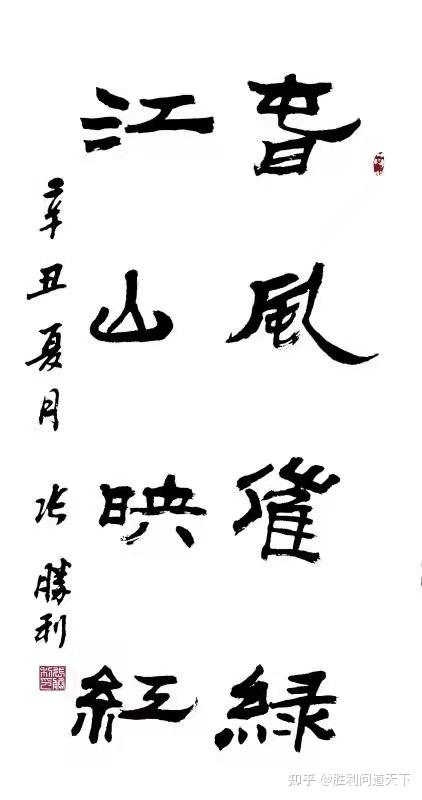 春风催緑
江山映紅
辛丑夏月 张勝利
知乎 @胜利问道天下